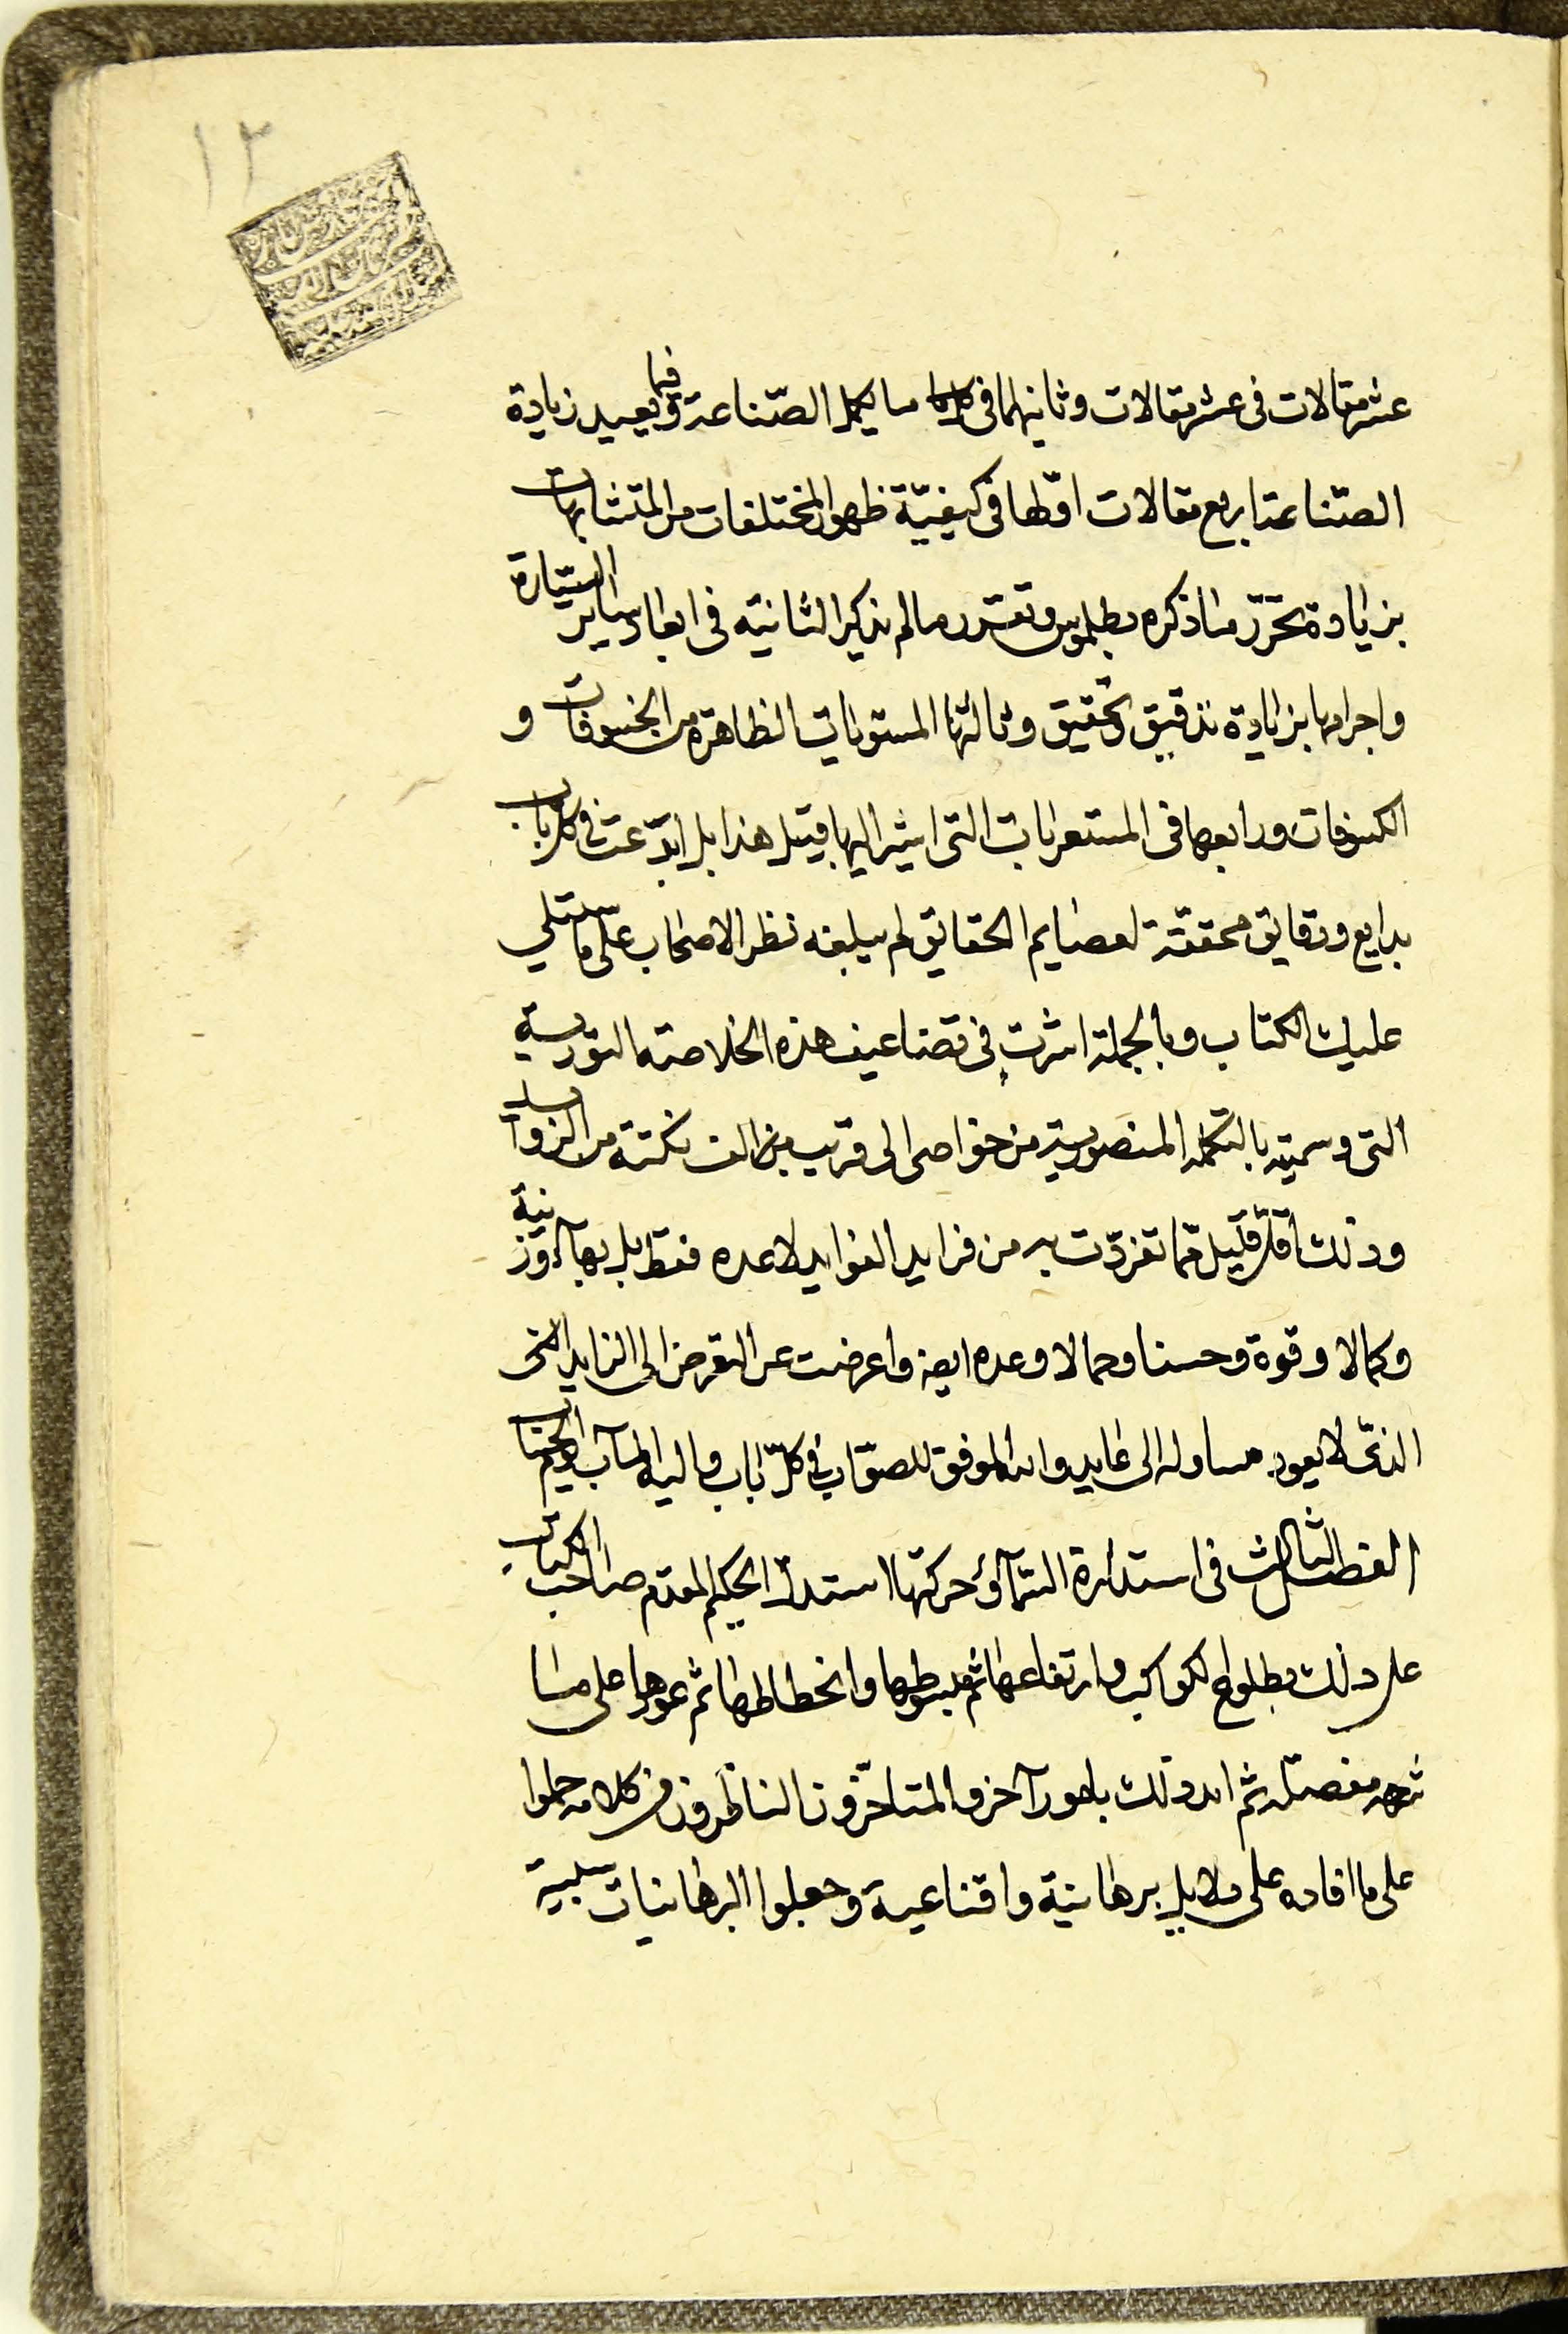 ١٢
عشر مقالات فى عشر مقالات وثانيهما فى ما يكمل الصّناعة وفيما يعيد زيادة
الصّناعة اربع مقالات اوّلها فى كيفيّة ظهور المختلفات من المتشابهات
بزيادة تحرّر ما ذكره بطلميوس وتقرر ما لم يذكر الثانية فى ابعاد ساير السيّارة
واجرامها بزيادة تدقيق وتحقيق وثالثها المستويات الظاهرة من الخسوفات و
الكسوفات ورابعها فى المستعربات التى اشير اليها قبل هذا بل ابدعت فى كل باب
بدايع ودقايق محققة لعضايم الحقايق لم يبلغه نظر الاصحاب على ما ستلى
عليك الكتاب وبالجملة اشرت فى تضاعيف هذه الخلاصة النورية
التى وسمتها بالتكملة المنصورية من خواصى الى قريب من الف نكتة من الزوايد
وذلك اقلّ قليل ممّا تفرّدت به من فرايد الفوايد لا عده فقط بل بهآء ورزنية
وكمالا وقوة وحسنا وجمالا وعده ايض واعرضت عن التعرض الى الزايد
الذى لا يعود مساوله الى عايد والله الموفق للصّواب فى كلّ باب واليه المآب
الفصل الثالث فى استدارة السّمآء وحركتها استدلّ الحكيم المقدم صاحب الكتاب
على ذلك بطلوع الكواكب وارتفاعها ثم هبوطها وانحطاطها ثم عودها على ما
مفصّلة ثم ايد ذلك بامور آخر والمتاخّرون الناظرون فى كلامه حملوا
على ما افاده على دلايل برهانية واقناعية وجعلوا البرهانيات سلبية